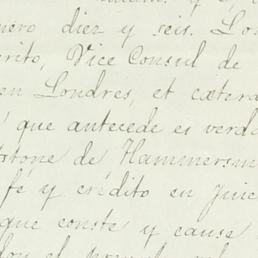 mero diez y seis. Lon
rito, Vice Consul de
en Londres, et cætera
que antecede es verda
stone de Hammersm
fé y crédito en Juic
que conste y cause